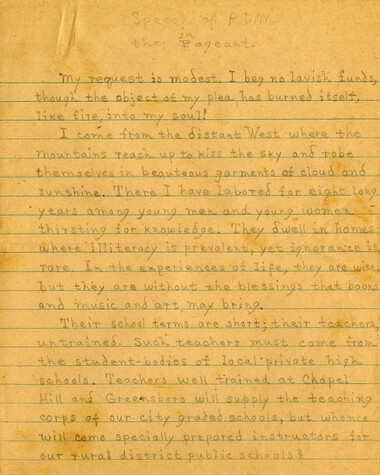 Speech of R.L.M.
in
the Pageant.
My request is modest. I beg no lavish funds,
though the object of my plea has burned itself,
like fire, into my soul!
I come from the distant West where the
mountains reach up to kiss the sky and robe
themselves in beauteous garments of cloud and
sunshine. There I have labored for eight long
years among young men and young women
thirsting for knowledge. They dwell in homes
where illiteracy is prevalent, yet ignorance is
rare. In the experiences of life, they are wise,
but they are without the blessings that books
and music and art may bring.
Their school terms are short; their teachers,
untrained. Such teachers must come from
the student-bodies of local private high
schools. Teachers well trained at Chapel
Hill and Greensboro will supply the teaching
corps of our city graded schools, but whence
will come specially prepared instructors for
our rural district public schools?